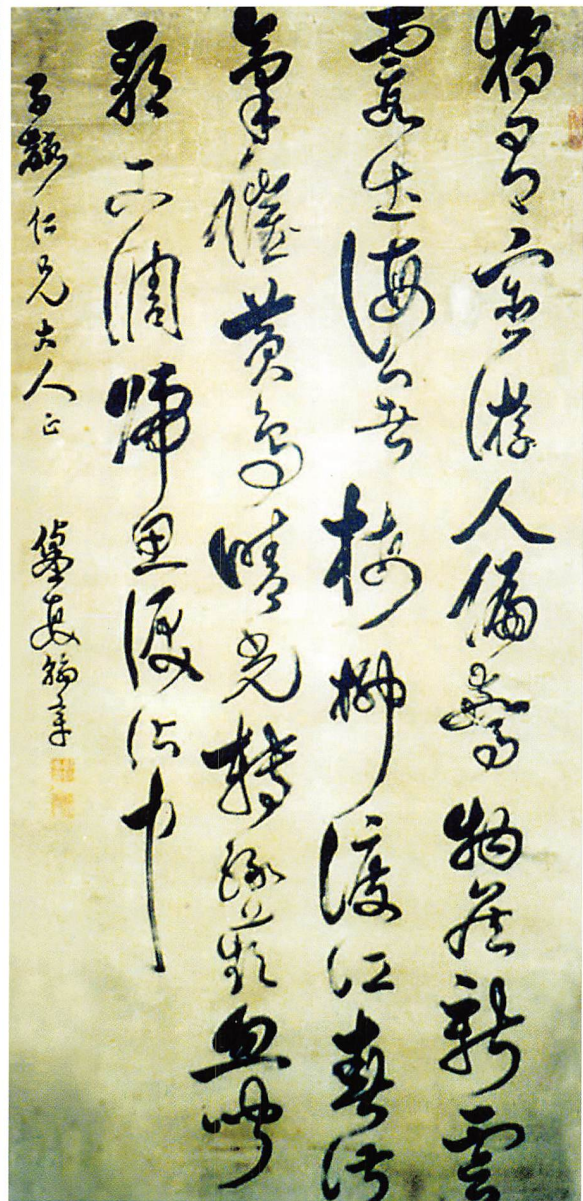 獨有宦游人偏驚物候新雲
霞出海曙梅柳渡江春淑
氣催黃鳥晴光轉綠蘋忽聞
歌古調歸思復沾巾
子仁兄大人正